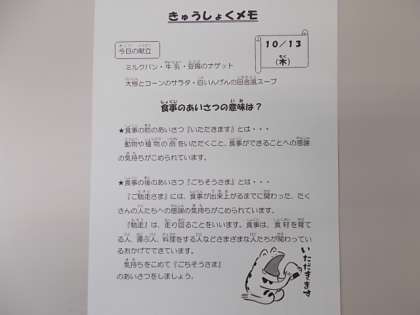 きゅうしょくメモ
今日の献立
10/13
(木)
ミルクパン・牛乳・豆腐のナゲット
大根とコーンのサラダ・白いんげんの田舎風スープ
食事のあいさつの意味は?
★食事の前のあいさつ『いただきます』とは・・・
動物や植物の命をいただくこと、食事ができることへの感謝
の気持ちがこめられています。
★食事の後のあいさつ『ごちそうさま』とは・・・
『ご馳走さま』には、食事が出来上がるまでに関わった、たく
さんの人たちへの感謝の気持ちがこめられています。
『馳走』は、走り回ることをいいます。食事は、食材を育て
る人、運ぶ人、料理をする人などさまざまな人たちが関わってい
るおかげでできています。
気持ちをこめて『ごちそうさま』
のあいさつをしましょう。
いただきます